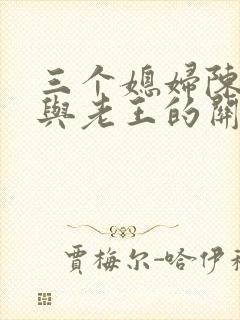 三个媳婦陳
與老王的開
賈梅尔-哈伊